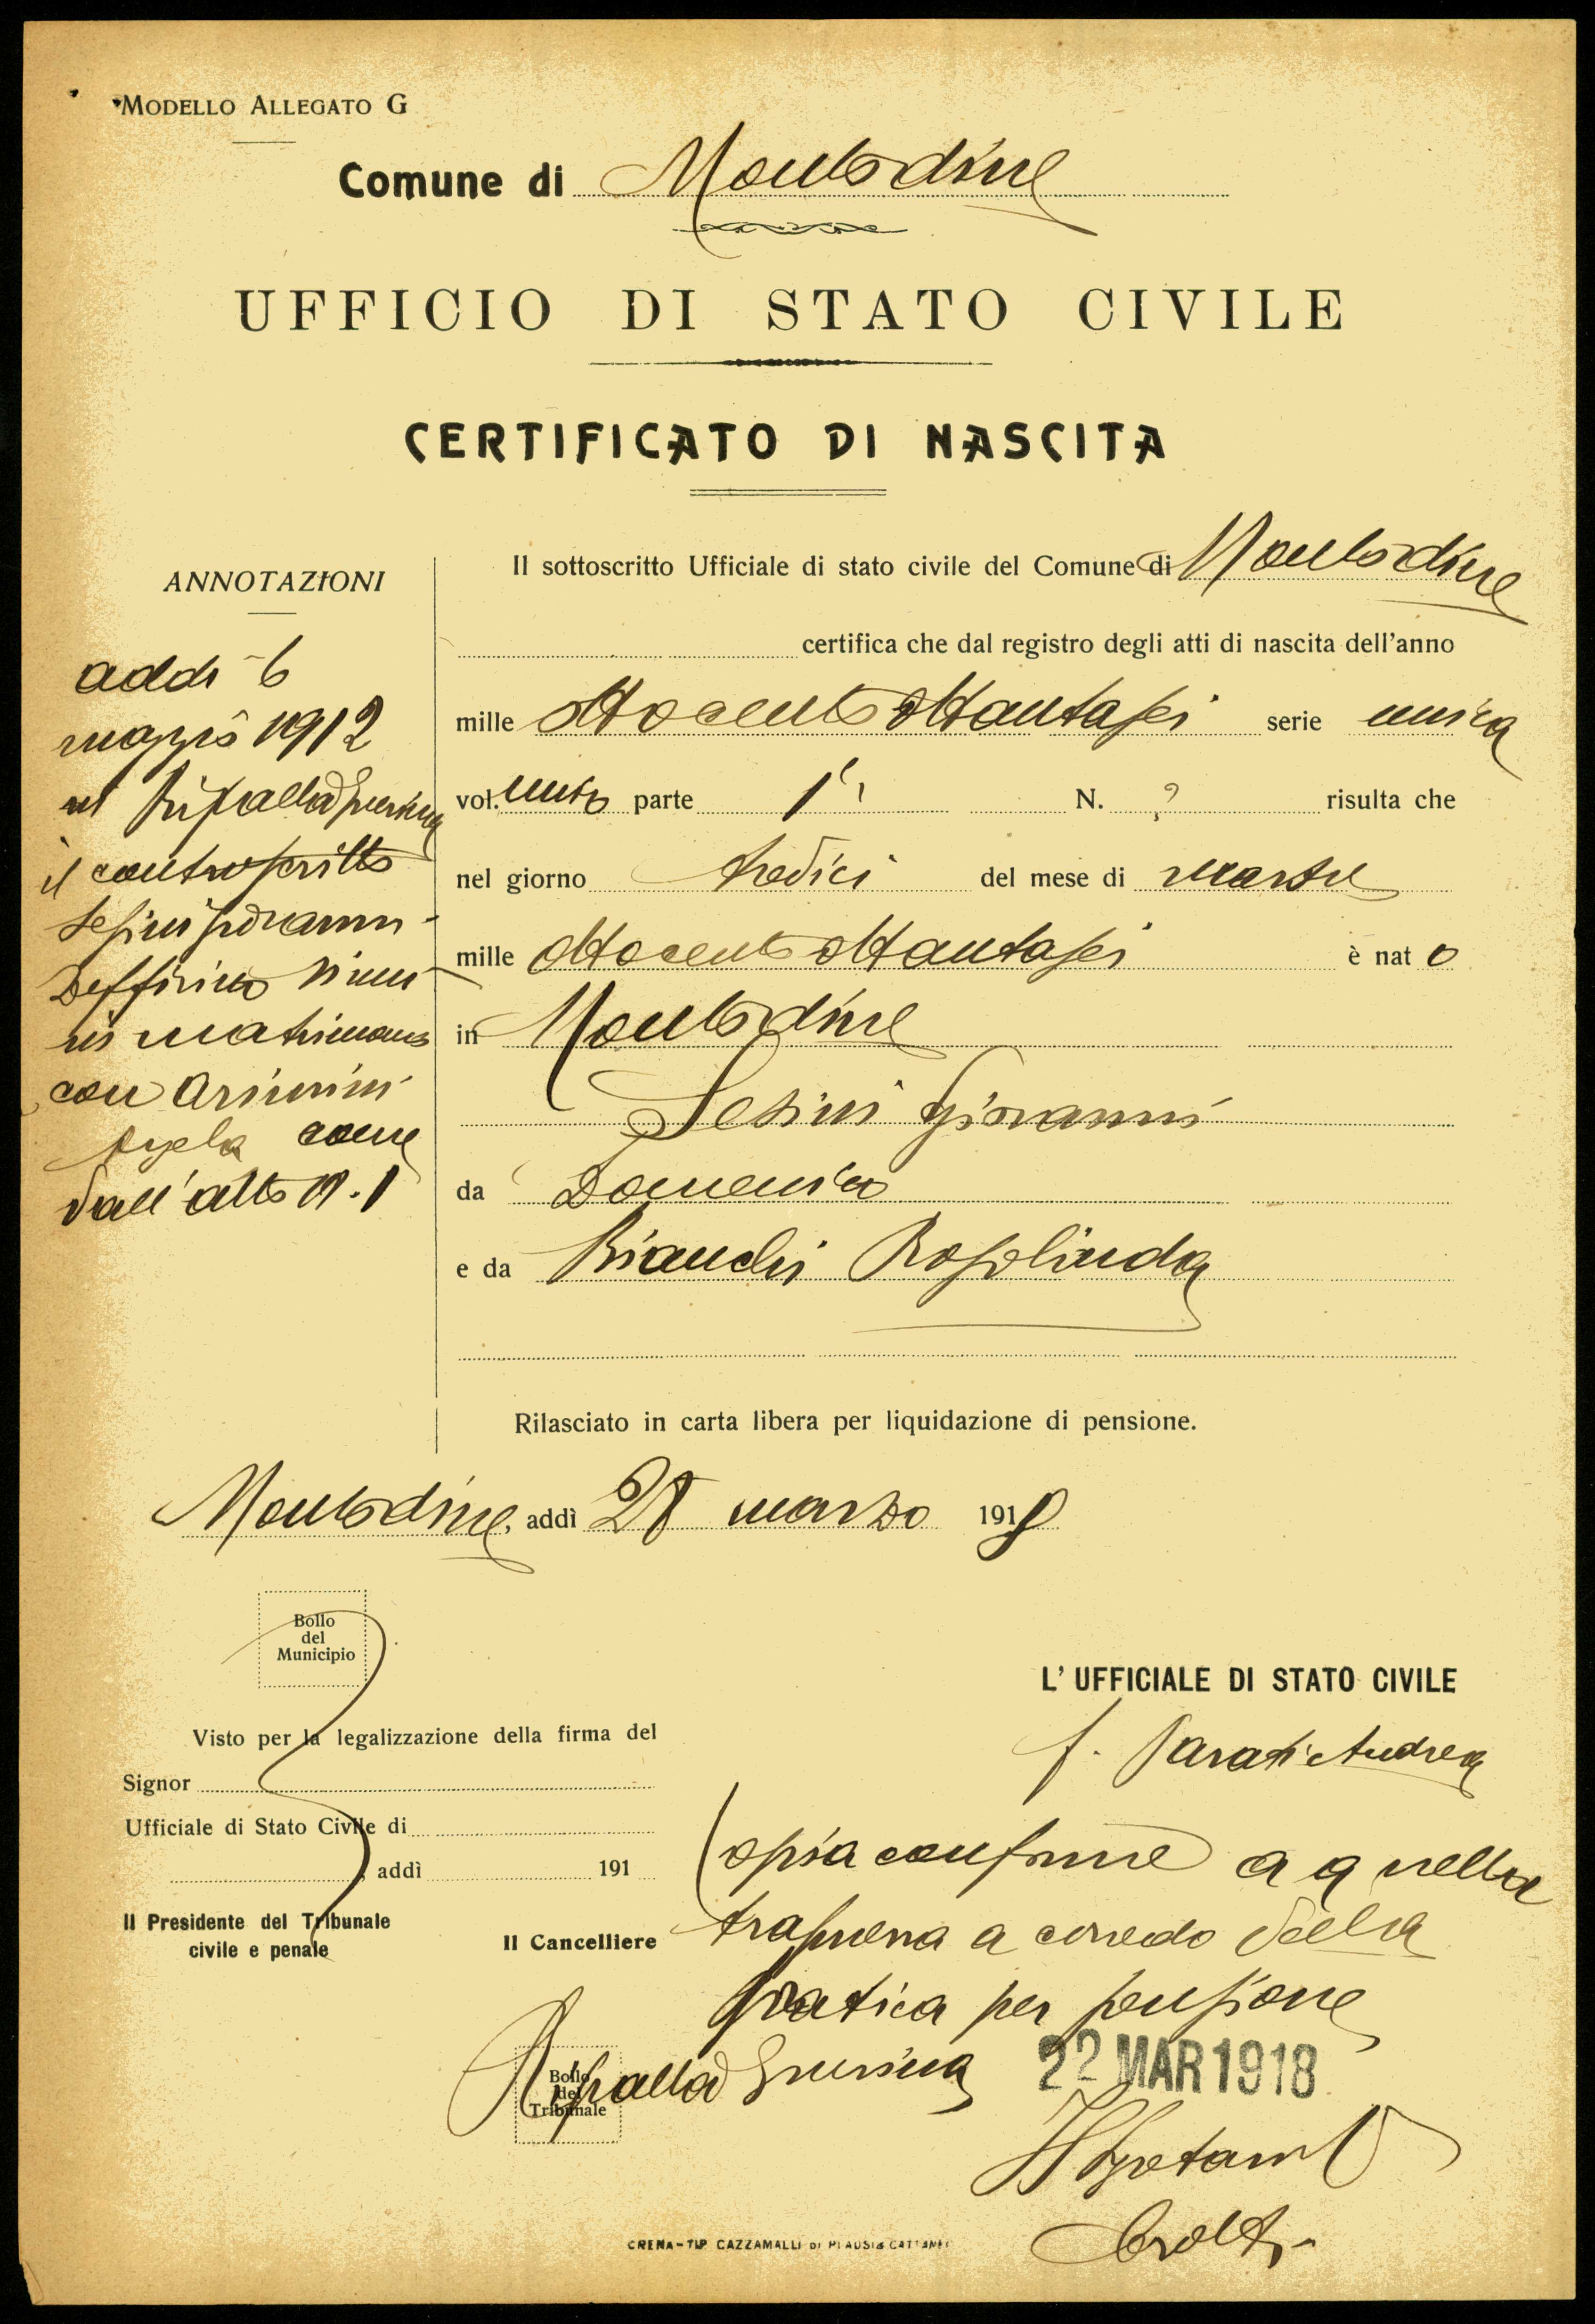 MODELLO ALLEGATO G
Comune di Montodine
UFFICIO DI STATO CIVILE
CERTIFICATO DI NASCITA
ANNOTAZIONI
addi 6
maggio 1912
in Ripalta Guerina
il controscritto
Sesini Giovanni
con Arimini
Angela come
dall'atto N. 1
Il sottoscritto Ufficiale di stato civile del Comune di Montodine
certifica che dal registro degli atti di nascita dell'anno
mille ottocentottantasei serie unica
vol. unico parte 1ª N. risulta che
nel giorno tredici del mese di marzo
mille ottocentottantasei è nato
in Montodine
Sesini Giovanni
da Domenico
e da Bianchi Rosolinda
Rilasciato in carta libera per liquidazione di pensione.
Montodine, addì marzo 191
Bollo
del
Municipio
L'UFFICIALE DI STATO CIVILE
f. Parati Andrea
Visto per la legalizzazione della firma del
Signor
Ufficiale di Stato Civile di
, addì 191
Il Presidente del Tribunale
civile e penale
Il Cancelliere
Copia conforme a quella
trasmessa a corredo della
pratica per pensione
Ripalta Guerina 22 MAR 1918
Bollo
del
Tribunale
Il Segretario
CREMA - TIP. CAZZAMALLI DI PLAUSI & CATTANEO